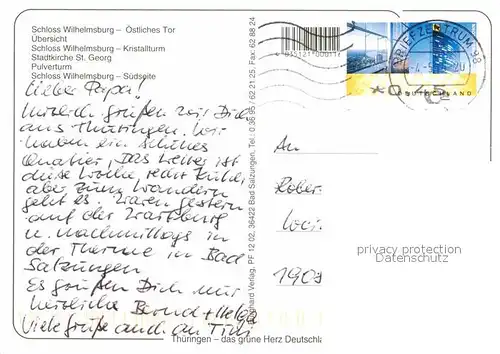 Schloss Wilhelmsburg – Östliches Tor
Übersicht
Schloss Wilhelmsburg – Kristallturm
Stadtkirche St. Georg
Pulverturm
Schloss Wilhelmsburg – Südseite
Lieber Papa!
Herzlich grüßen wir Dich
aus Thüringen. Wir
haben ein schönes
Quatier, das Wetter ist
diese Woche sehr kühl,
aber zum Wandern
geht es. Waren gestern
auf der Wartburg
u. nachmittags in
der Therme in Bad
Salzungen
Es grüßen Dich
herzliche Bernd + Helga
Viele Grüße auch an
Verlag, PF 12 02, 36422 Bad Salzungen, Tel.: 0 36 95/62 21 25, Fax 62 88 24
BRIEFZENTRUM 98
0,45
DEUTSCHLAND
An
Rober
1909
privacy protection
Datenschutz
Thüringen – das grüne Herz Deutschla